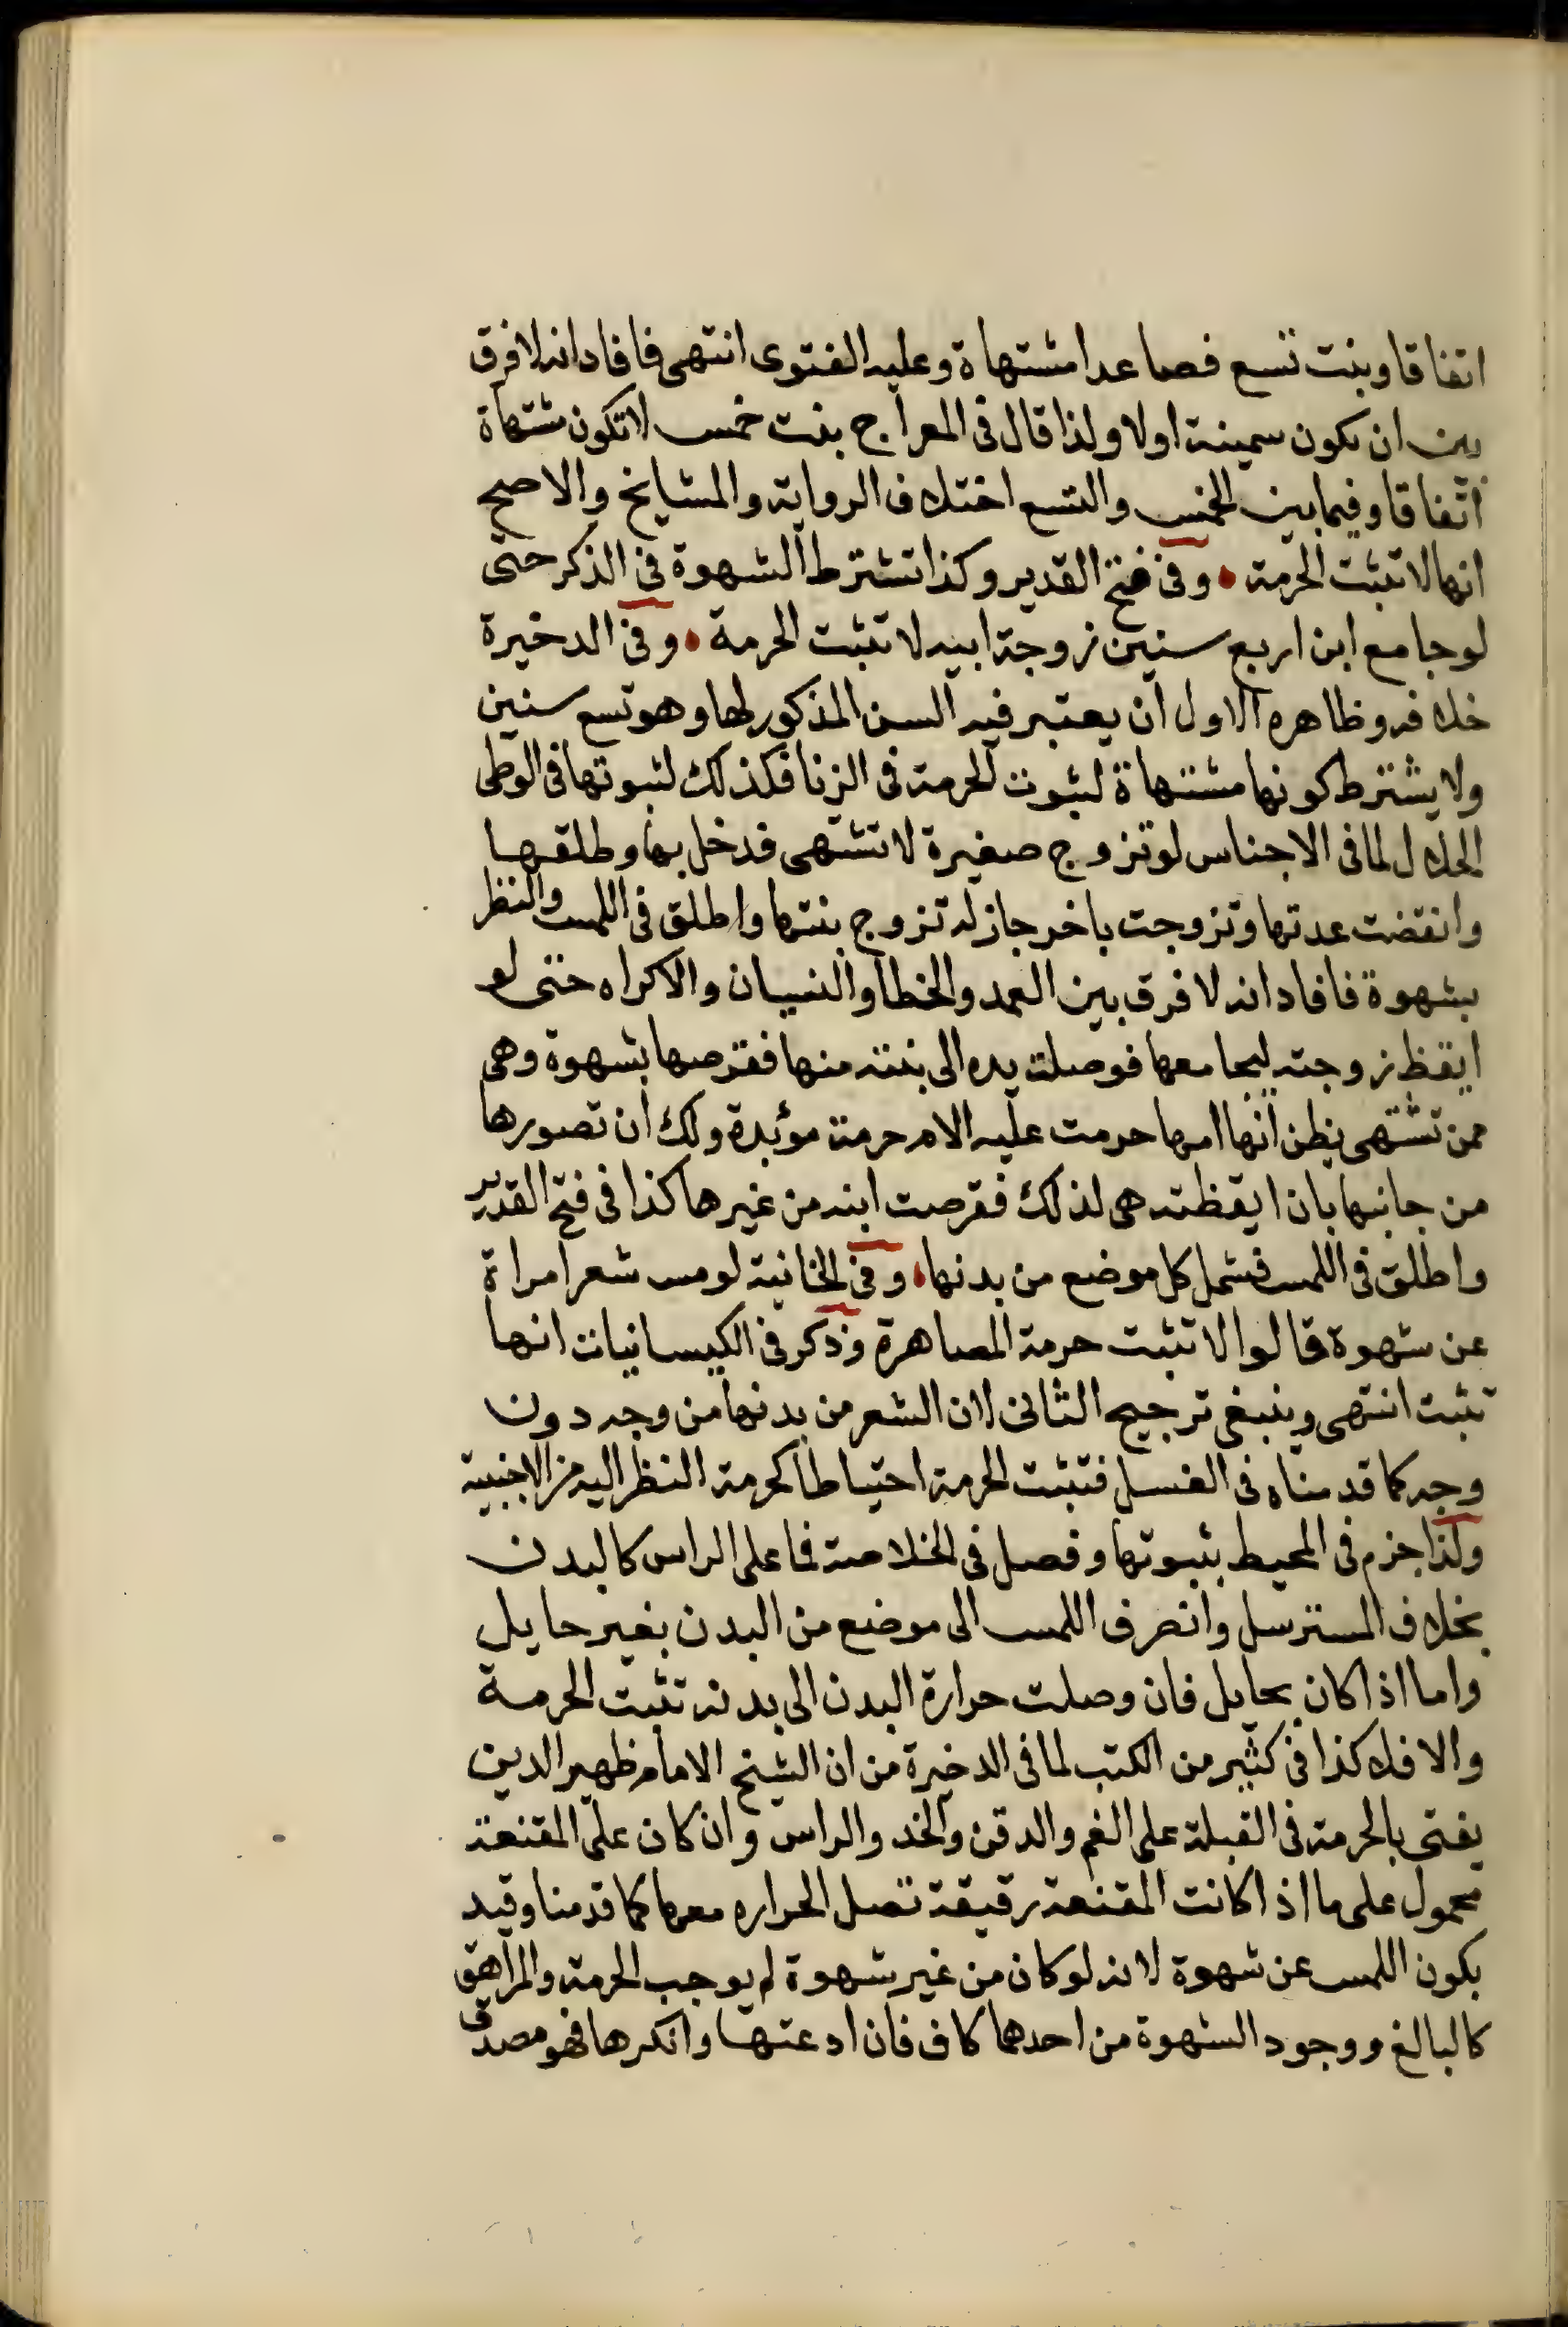 اتفاقا وبنت تسع فصاعدا مشتهاة وعليه الفتوى انتهى فافاد انه لا فرق
بين ان تكون سمينة اولا ولذا قال فى المعراج بنت خمس لا تكون مشتهاة
اتفاقا وفيما بين الخمس والتسع اختلاف الرواية والمشايخ والاصح
انها لا تثبت الحرمة وفى فتح القدير وكذا تشترط الشهوة فى الذكر حتى
لو جامع ابن اربع سنين زوجة ابيه لا تثبت الحرمة وفى الدخيرة
خلافه وظاهره الاول ان يعتبر فيه السن المذكور لها وهو تسع سنين
ولا يشترط كونها مشتهاة لثبوت الحرمة فى الزنا فكذلك لثبوتها فى الوطى
الحلال لما فى الاجناس لو تزوج صغيرة لا تشتهى فدخل بها وطلقها
وانقضت عدتها وتزوجت باخر جاز له تزوج بنتها واطلق فى اللمس والنظر
بشهوة فافاد انه لا فرق بين العمد والخطا والنسيان والاكراه حتى لو
ايقظ زوجته ليجامعها فوصلت يده الى بنته منها فقرصها بشهوة وهى
ممن تشتهى يظن انها امها حرمت عليه الام حرمة مؤبدة ولك ان تصورها
من جانبها بان ايقظته هى لذلك فقرصت ابنه من غيرها كذا فى فتح القدير
واطلق فى اللمس فشمل كل موضع من بدنها وفى الخانية لو مس شعر امراة
عن شهوة قالوا لا تثبت حرمة المصاهرة وذكر فى الكيسانيات انها
تثبت انتهى وينبغى ترجيح الثانى لان الشعر من بدنها من وجه دون
وجه كما قدمناه فى الغسل فتثبت الحرمة احتياطا كحرمة النظر اليه من الاجنبية
ولذا جزم فى المحيط بثبوتها وفصل فى الخلاصة فما على الراس كالبدن
بخلاف المسترسل وانصرف اللمس الى موضع من البدن بغير حايل
واما اذا كان بحايل فان وصلت حرارة البدن الى بدنه تثبت الحرمة
والا فلا كذا فى كثير من الكتب لما فى الدخيرة من ان الشيخ الامام ظهير الدين
يفتى بالحرمة فى القبلة على الفم والدقن والخد والراس وان كان على المقنعة
محمول على ما اذا كانت المقنعة رقيقة تصل الحراره معها كما قدمنا وقيد
بكون اللمس عن شهوة لانه لو كان من غير شهوة لم يوجب الحرمة والمراهق
كالبالغ ووجود الشهوة من احدهما كاف فان ادعتها وانكرها فهو مصدق